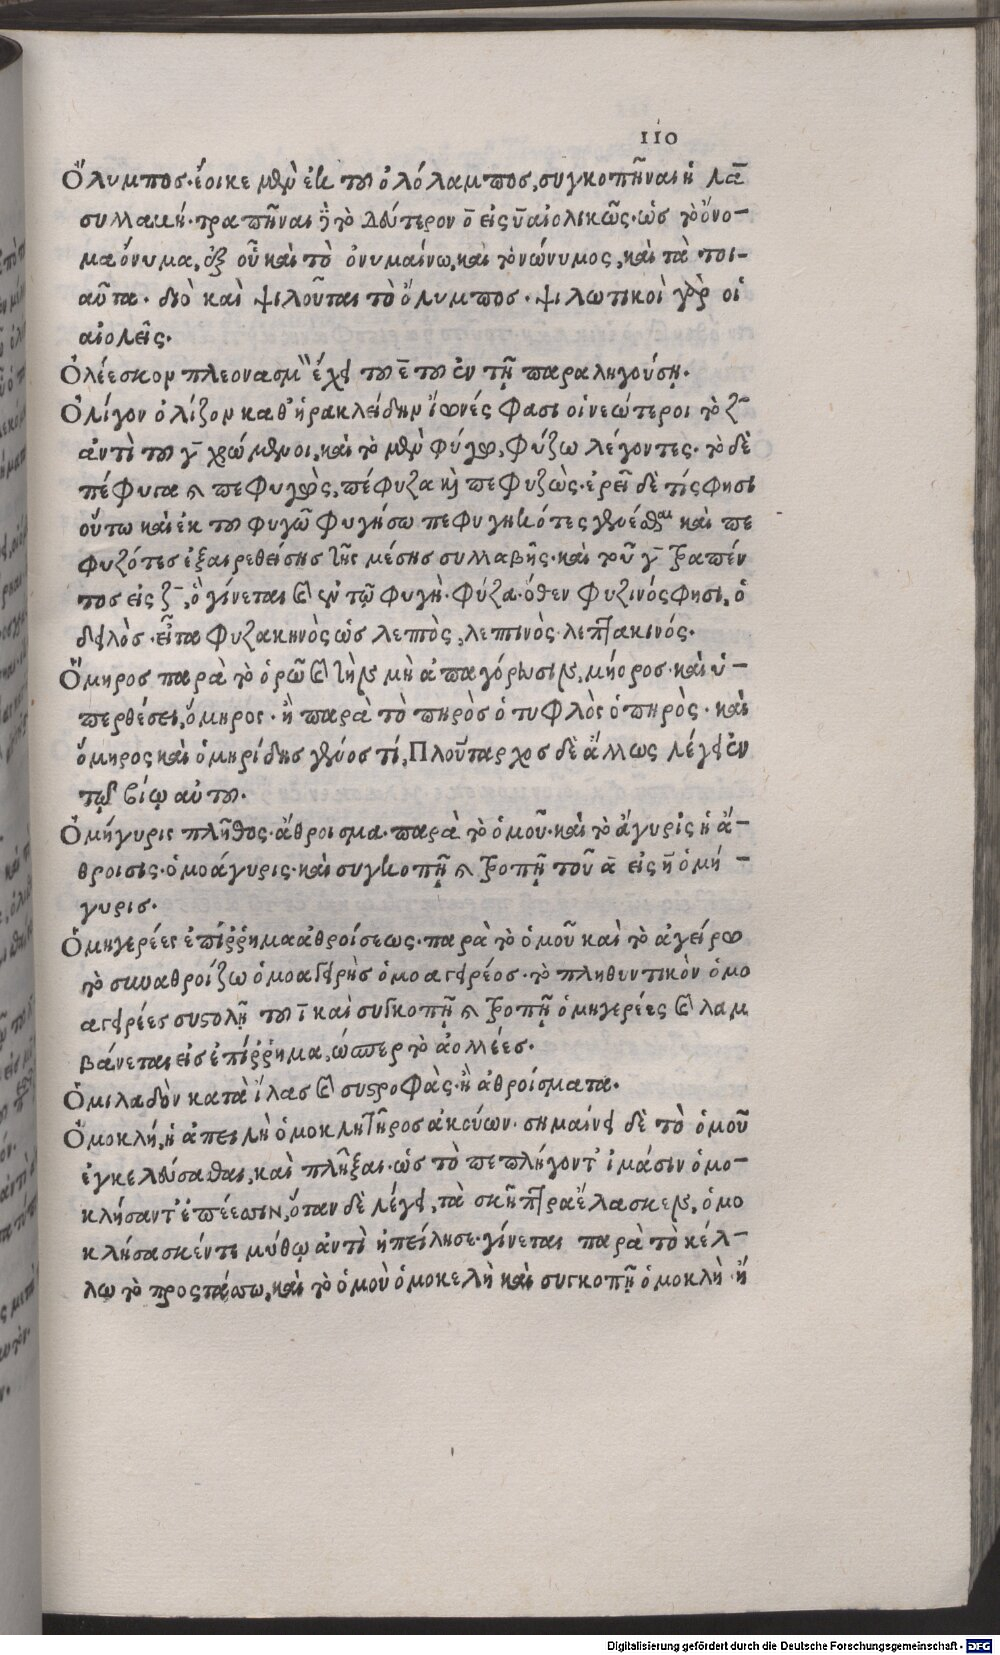 110
Ὄλυμπος· ἔοικε μὲν ἐκ τοῦ ὁλόλαμπος, συγκοπῆναι ἡ λα̅
συλλαβή· τραπῆναι δὲ τὸ δεύτερον ο̅ εἰς υ̅ αἰολικῶς· ὡς τὸ ὄνο-
μα ὄνυμα, ἐξ οὗ καὶ τὸ ὀνυμαίνω, καὶ τὸ νώνυμος, καὶ τὰ τοι-
αῦτα· διὸ καὶ ψιλοῦται τὸ ὄλυμπος· ψιλωτικοὶ γὰρ οἱ
αἰολεῖς.
Ὀλέεσκον πλεονασμὸν ἔχει τοῦ ε̅ τοῦ ἐν τῇ παραληγούσῃ.
Ὀλίγον ὀλίζον καθ' ἡρακλείδην ἴωνές φασι οἱ νεώτεροι τὸ ζ̅
ἀντὶ τοῦ γ̅ χρώμενοι, καὶ τὸ μὲν φύγω, φύζω λέγοντες· τὸ δὲ
πέφυγα καὶ πεφυγὼς, πέφυζα καὶ πεφυζὼς· ἐρεῖ δὲ τίς φησι
οὕτω καὶ ἐκ τοῦ φυγῶ φυγήσω πεφυγηκότες γενέσθαι καὶ πε
φυζότες ἐξαιρεθείσης τῆς μέσης συλλαβῆς· καὶ τοῦ γ̅ τραπέν
τος εἰς ζ̅, ὃ γίνεται καὶ ἐν τῷ φυγὴ· φύζα· ὅθεν φυζινός φησι, ὁ
δειλὸς· εἶτα φυζακηνὸς ὡς λεπτὸς, λεπτινὸς· λεπτακινός.
Ὅμηρος παρὰ τὸ ὁρῶ καὶ τὴν μὴ ἀπαγόρευσιν, μήορος· καὶ ὑ-
περθέσει, ὅμηρος· ἢ παρὰ τὸ πηρὸς ὁ τυφλὸς ὁ πηρὸς· καὶ
ὅμηρος καὶ ὁμηρίδης γένος τί, Πλούταρχος δὲ ἄλλως λέγει ἐν
τῷ βίῳ αὐτοῦ.
Ὁμήγυρις πλῆθος· ἄθροισμα· παρὰ τὸ ὁμοῦ· καὶ τὸ ἄγυρις ἡ ἄ-
θροισις· ὁμοάγυρις· καὶ συγκοπῇ καὶ τροπῇ τοῦ α̅ εἰς η̅ ὁμή-
γυρις.
Ὁμηγερέες ἐπίῤῥημα ἀθροίσεως· παρὰ τὸ ὁμοῦ καὶ τὸ ἀγείρω
τὸ συναθροίζω ὁμοαγειρὴς ὁμοαγειρέος· τὸ πληθυντικὸν ὁμο
αγειρέες συστολῇ τοῦ ι̅ καὶ συγκοπῇ καὶ τροπῇ ὁμηγερέες καὶ λαμ
βάνεται εἰς ἐπίῤῥημα, ὥσπερ τὸ ἀολλέες.
Ὁμιλαδὸν κατὰ ἴλας καὶ συστροφὰς· ἢ ἀθροίσματα.
Ὁμοκλή, ἡ ἀπειλὴ ὁμοκλητῆρος ἀκούων· σημαίνει δὲ τὸ ὁμοῦ
ἐγκελεύσασθαι, καὶ πλῆξαι· ὡς τὸ πεπλήγοντ' ἱμάσιν ὁμο-
κλήσαντ' ἐπέεσσιν, ὅταν δὲ λέγει, τὰ σκῆπτρα ἔλασκεν, ὁμο
κλήσασκέντε μύθῳ ἀντὶ ἠπείλησε· γίνεται παρὰ τὸ κέλ-
λω τὸ προστάσσω, καὶ τὸ ὁμοὺ ὁμοκελὴ καὶ συγκοπῇ ὁμοκλὴ ἢ
Digitalisierung gefördert durch die Deutsche Forschungsgemeinschaft - DFG